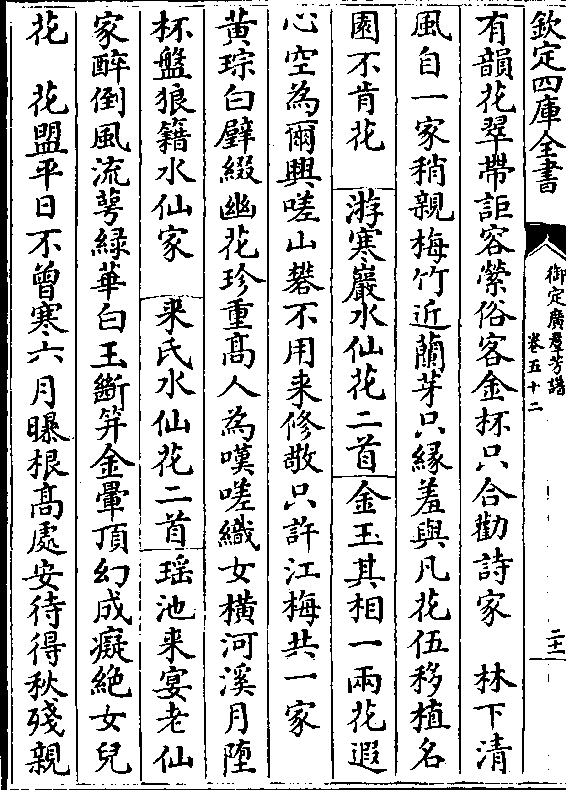 欽定四庫全書
御定廣羣芳譜
卷五十二
二十一
有韻花翠帶詎容縈俗客金杯只合勸詩家　林下清
風自一家稍親梅竹近蘭芽只緣羞與凡花伍移植名
園不肯花　游寒巖水仙花二首　金玉其相一兩花遐
心空為爾興嗟山礬不用来修敬只許江梅共一家
黄琮白璧綴幽花珍重髙人為嘆嗟織女橫河溪月墮
杯盤狼籍水仙家　来氏水仙花二首　瑶池来宴老仙
家醉倒風流萼緑華白玉斷笄金暈頂幻成癡絶女兒
花　花盟平日不曾寒六月曝根髙處安待得秋殘親